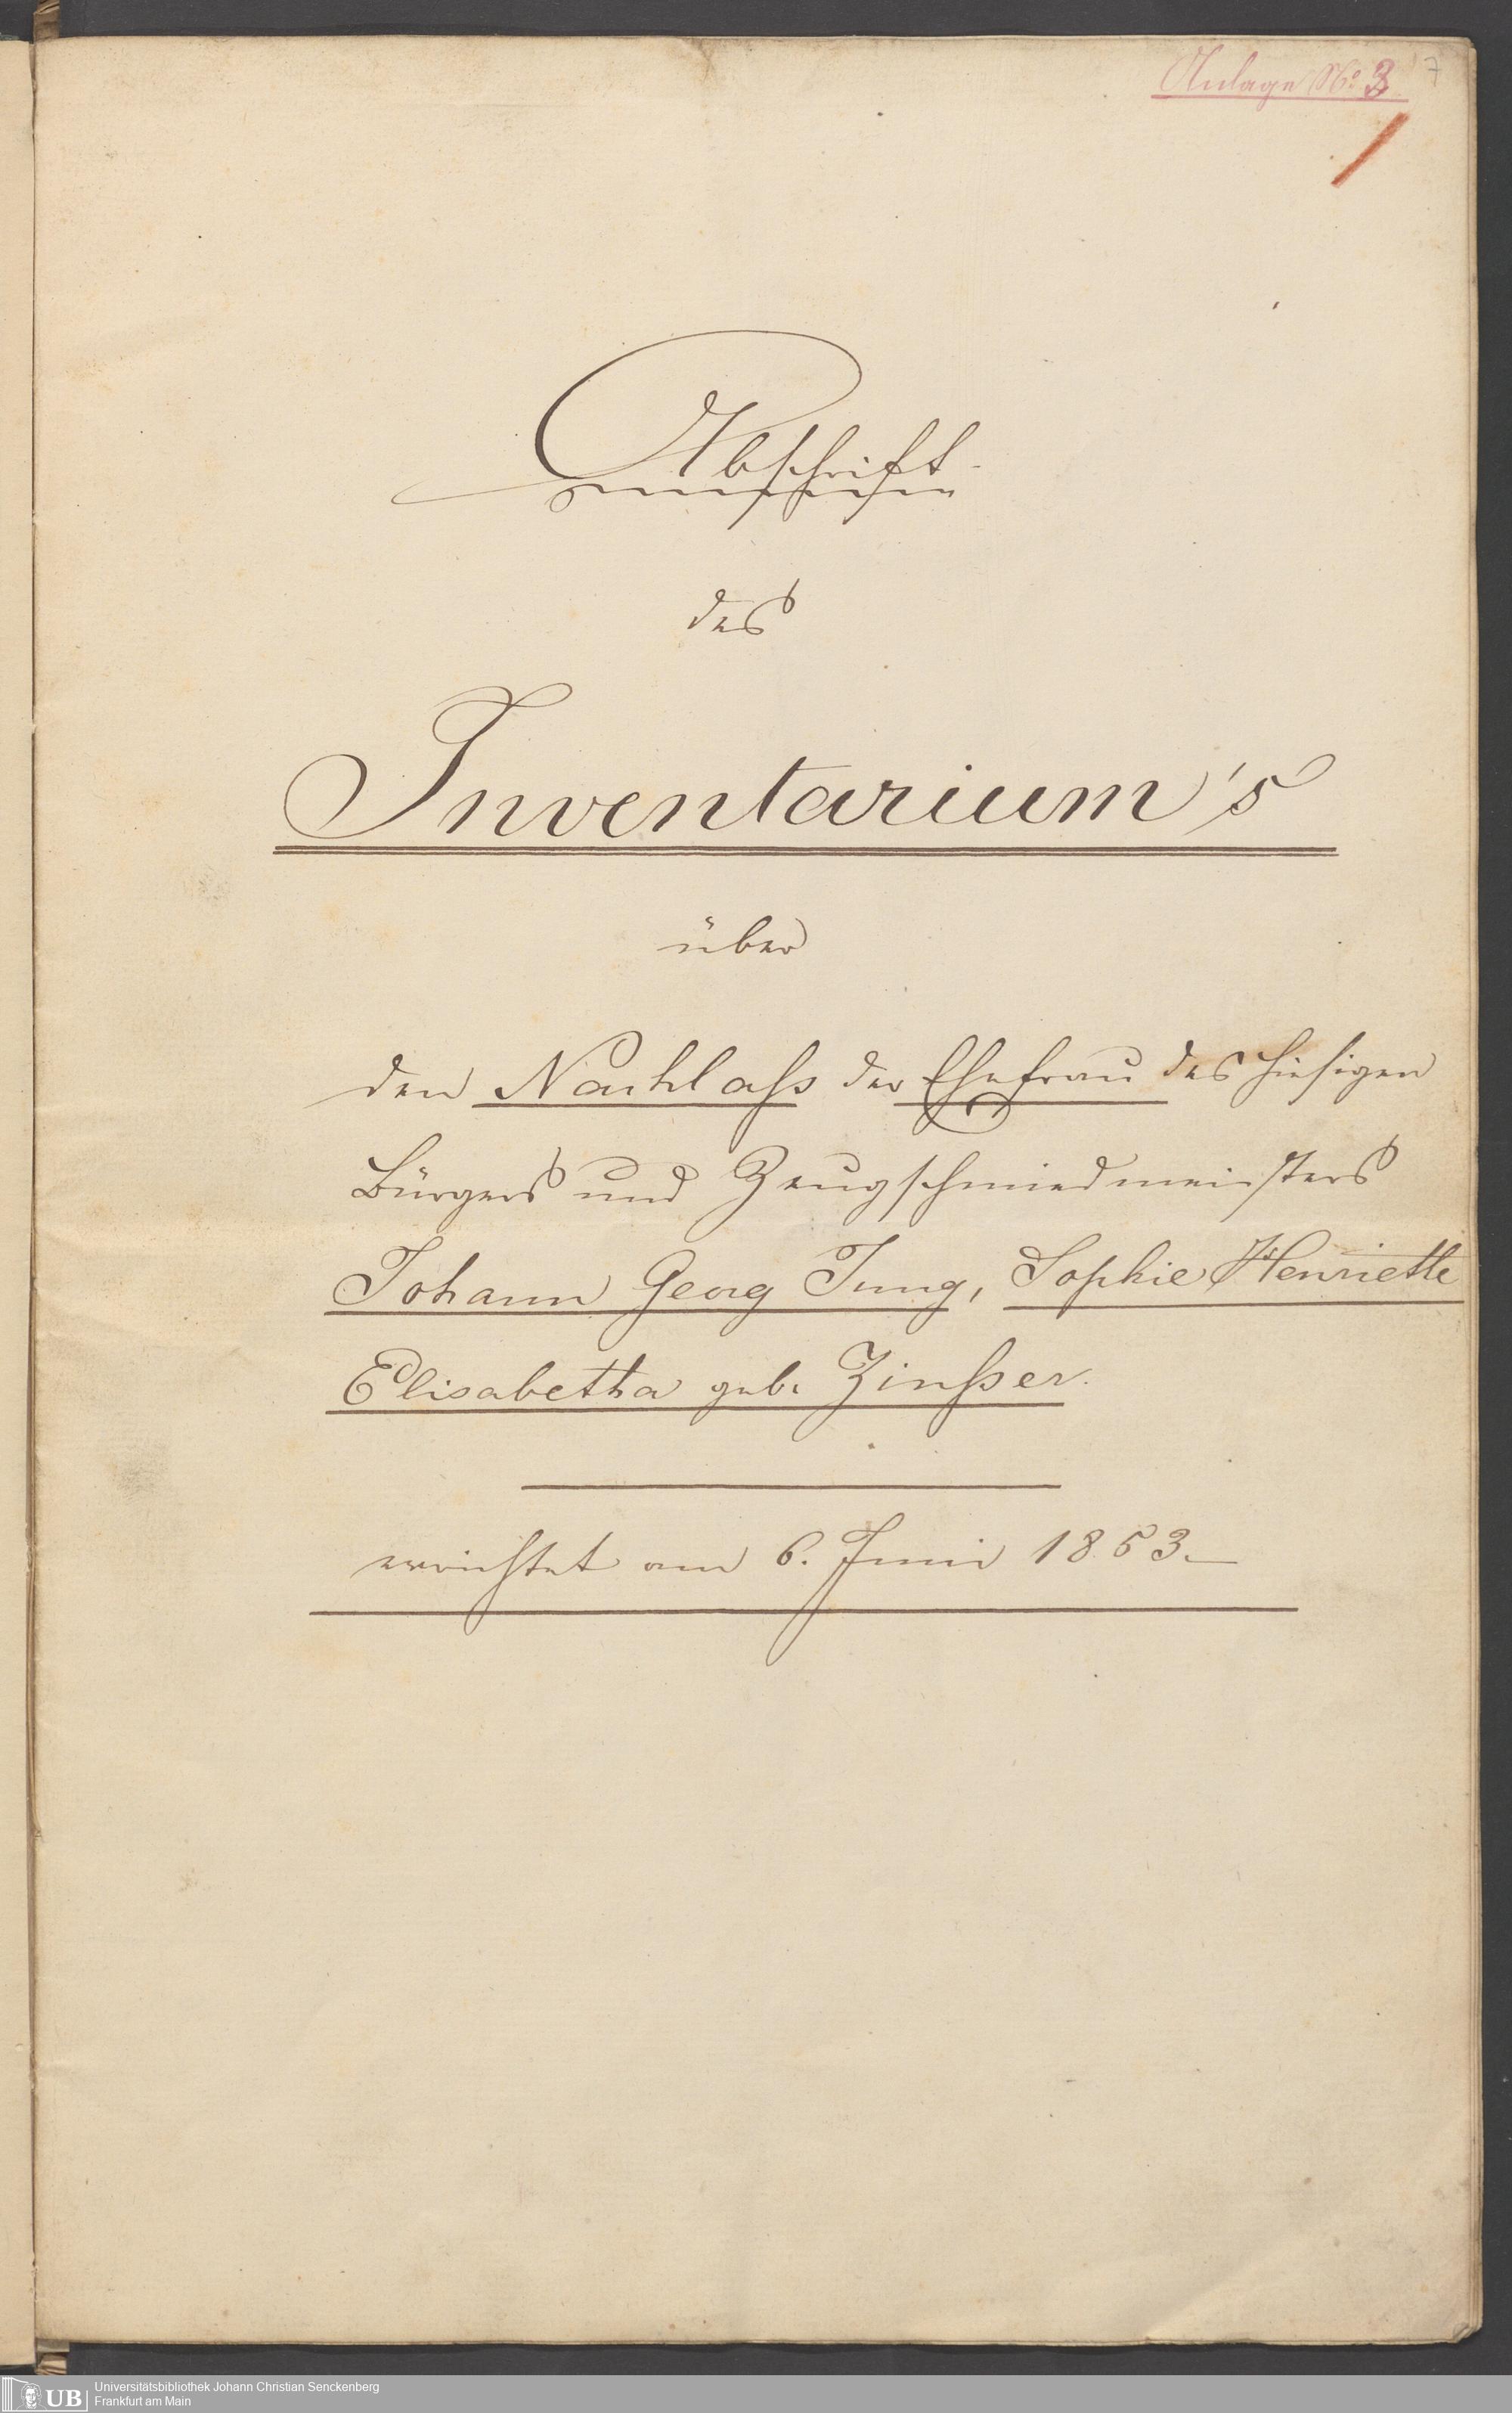 Anlage No 3
7
Abschrift
des
Inventarium's
über
den Nachlaß der Ehefrau des hiesigen
Bürgers und Zeugschmiedmeisters
Johann Georg Jung, Sophie Henriette
Elisabetha geb. Zinßer.
errichtet am 6. Juni 1853.
UB
Universitätsbibliothek Johann Christian Senckenberg
Frankfurt am Main